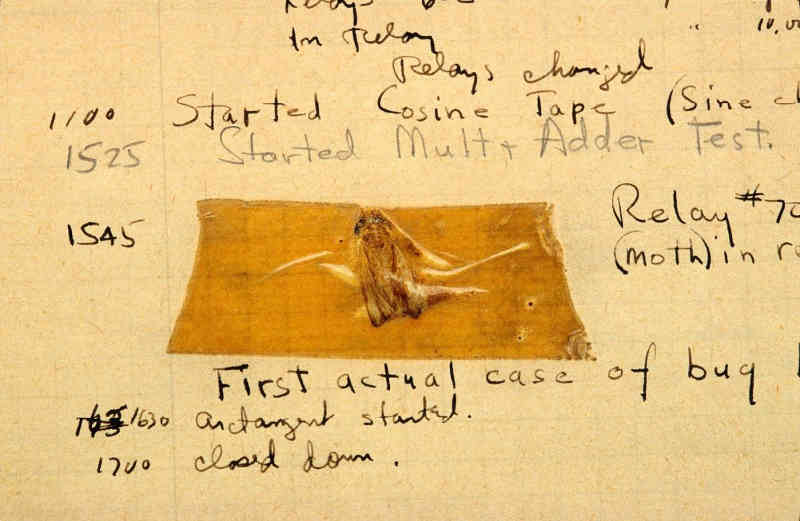 Relays
In Relay
10,00
Relays changed
1100 Started Cosine Tape (Sine c
1525 Started Mult+ Adder Test.
1545
Relay #70
(moth) in r
First actual case of bug
1630 arctangent started.
1700 closed down.